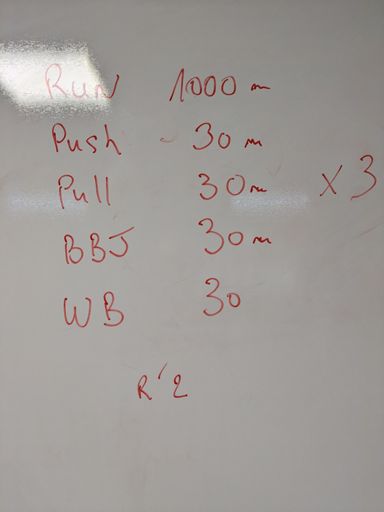 Run 1000 m
Push - 30 m
Pull 30 m x 3
BBJ 30 m
WB 30
R'2